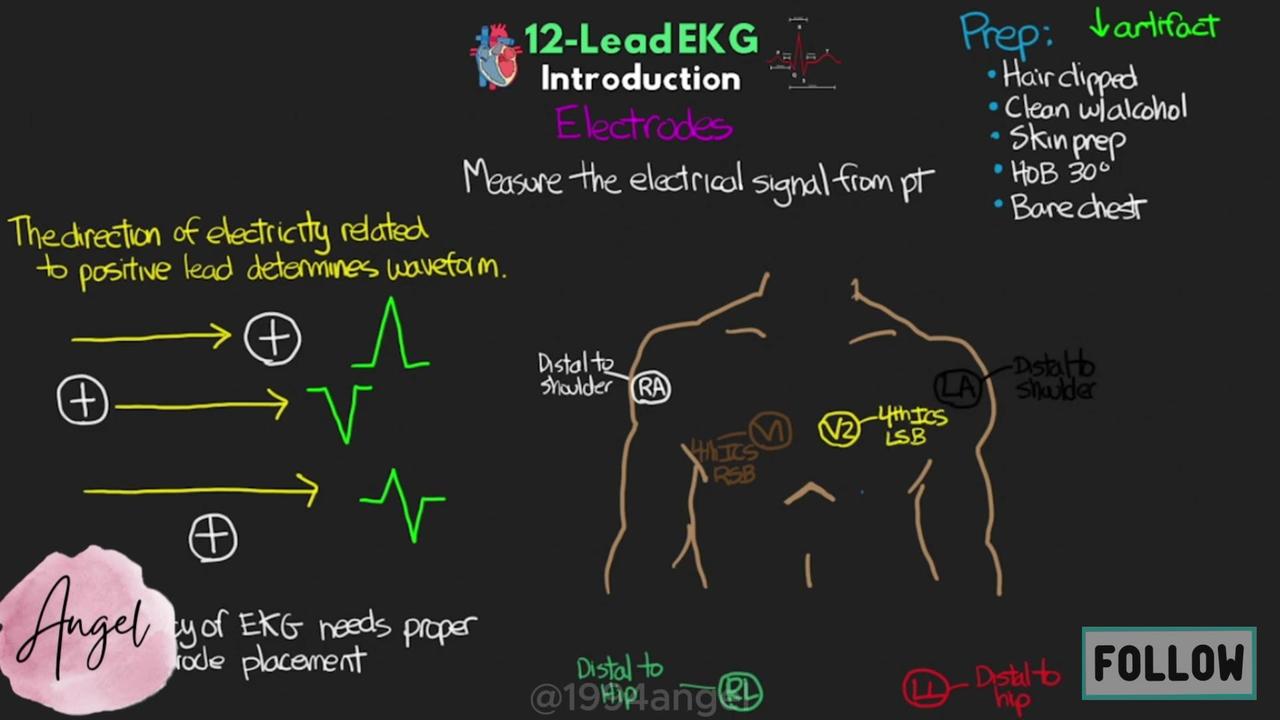 12-Lead EKG
Introduction
Electrodes
Measure the electrical signal from pt
Prep: ↓artifact
• Hair clipped
• Clean w/alcohol
• Skin prep
• HOB 30°
• Bare chest
The direction of electricity related
to positive lead determines waveform.
+
+
+
cy of EKG needs proper
rode placement
Distal to
shoulder
RA
LA
Distal to
shoulder
V1
4th ICS
RSB
V2
4th ICS
LSB
Distal to
Hip
RL
LL
Distal to
hip
Angel
@1994angel
FOLLOW